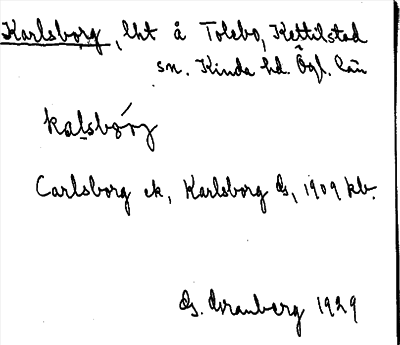 Karlsborg, lht å Tolebo, Kettilstad
sn. Kinda hd. Ögl. län
kalsbörj
Carlsborg ek, Karlsborg Gs, 1909 kb.
G. Granberg 1929